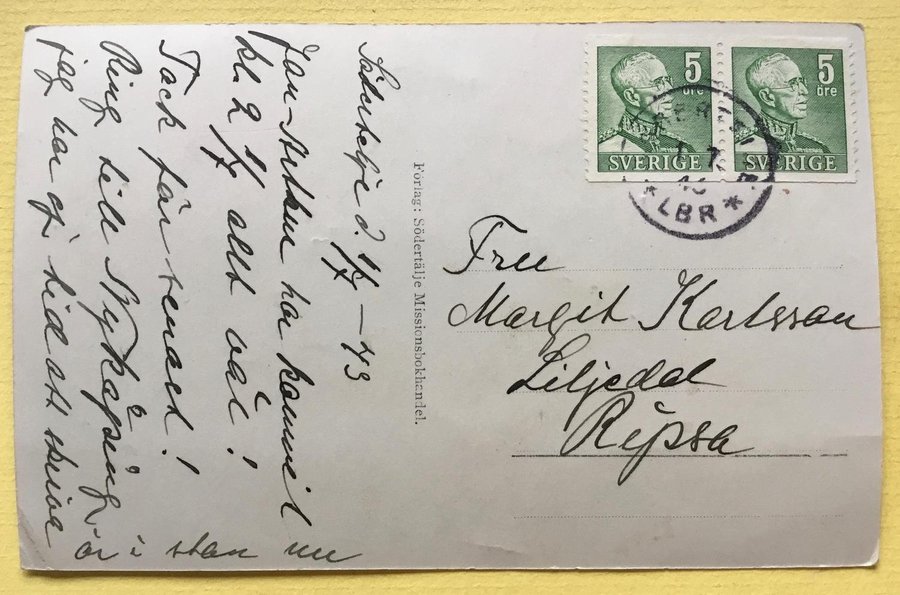 Södertelje d. 1/7 – 43
Jan-Arthur har kommit
kl 2 1/7 allt väl!
Tack för senast!
Ring till Nyköping
jag har ej tid att skriva
är i stan nu
Förlag: Södertälje Missionsbokhandel.
5 öre
SVERIGE
5 öre
SVERIGE
LBR
Fru
Margit Karlsson
Liljedal
Ripsa